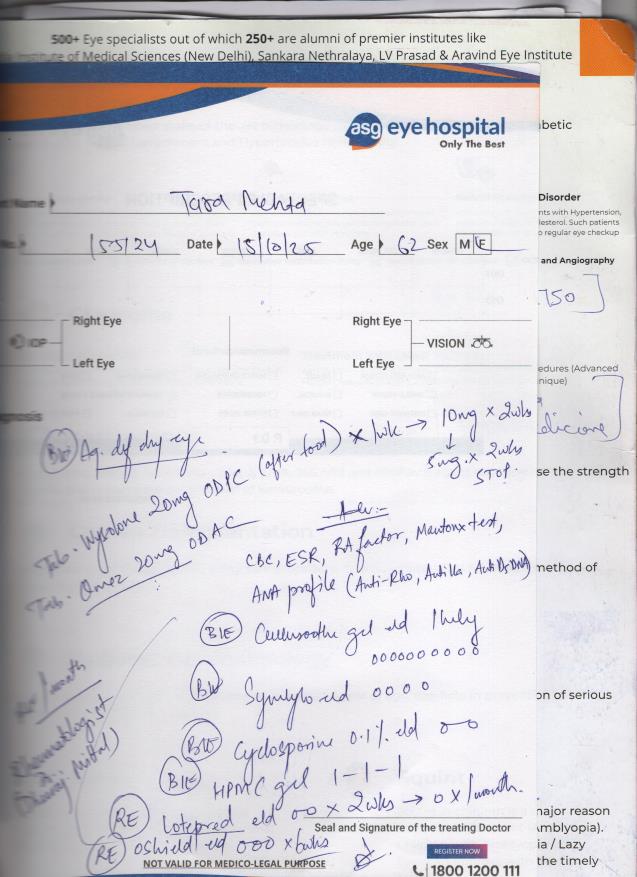 500+ Eye specialists out of which 250+ are alumni of premier institutes like
Institute of Medical Sciences (New Delhi), Sankara Nethralaya, LV Prasad & Aravind Eye Institute
asg eye hospital
Only The Best
betic
Name Tara Mehta
Disorder
nts with Hypertension,
lesterol. Such patients
o regular eye checkup
No. 155/24 Date 15/10/25 Age 62 Sex M F
and Angiography
750
Right Eye Right Eye
IOP VISION
Left Eye Left Eye
edures (Advanced
nique)
gnosis
edicine
BE Aq. def dry eye
Tab. Wysolone 20mg ODPC (after food) x 1wk → 10mg x 2wks
↓
5mg x 2wks
STOP.
se the strength
Tab. Omez 20mg ODAC
Adv:-
CBC, ESR, RA factor, Mantoux test,
ANA profile (Anti-Rho, Anti La, Anti Ds DNA)
method of
BE gel e/d 1 hrly
0000000000
BE e/d 0 0 0 0
on of serious
RE / month
Rheumatologist
Dheeraj Mittal)
BE Cyclosporine 0.1% e/d 0 0
BE HPMC gel 1-1-1
RE Lotepred e/d 00 x 2wks → 0 x 1month.
najor reason
Amblyopia).
RE oshield e/d 000 x 6wks
Seal and Signature of the treating Doctor
ia / Lazy
NOT VALID FOR MEDICO-LEGAL PURPOSE
REGISTER NOW
the timely
1800 1200 111